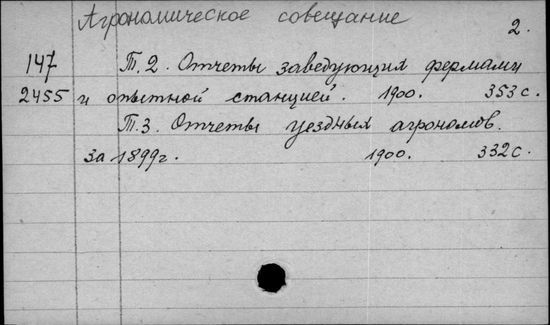 Агрономическое совещание 2.
147 Т.2. Отчеты заведующих фермами
2455 и опытной станцией. 1900. 353 с.
Т.3. Отчеты уездных агрономов.
за 1899 г. 1900. 332 с.